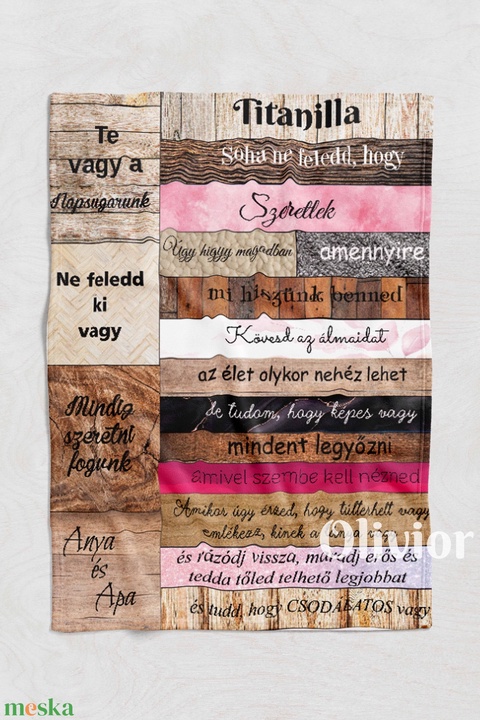 Te
vagy a
Napsugarunk
Ne feledd
ki
vagy
Mindig
szeretni
fogunk
Anya
és
Apa
Titanilla
Soha ne feledd, hogy
Szeretlek
Úgy higyy magadban
amennyire
mi hiszünk benned
Kövesd az álmaidat
az élet olykor nehéz lehet
de tudom, hogy képes vagy
mindent legyőzni
amivel szembe kell nézned
Amikor úgy érzed, hogy túlterhelt vagy
emlékezz, kinek a
Olivior
és rázódj vissza, maradj erős és
tedda tőled telhető legjobbat
és tudd, hogy CSODÁLATOS vagy
meska